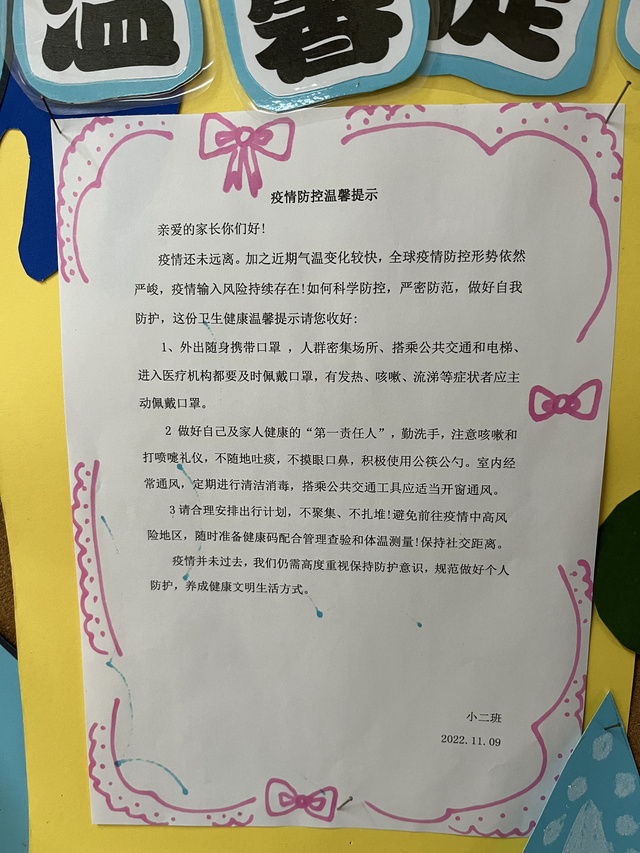 温馨提
疫情防控温馨提示
亲爱的家长你们好!
疫情还未远离。加之近期气温变化较快，全球疫情防控形势依然
严峻，疫情输入风险持续存在!如何科学防控，严密防范，做好自我
防护，这份卫生健康温馨提示请您收好:
1、外出随身携带口罩 ，人群密集场所、搭乘公共交通和电梯、
进入医疗机构都要及时佩戴口罩，有发热、咳嗽、流涕等症状者应主
动佩戴口罩。
2 做好自己及家人健康的“第一责任人”，勤洗手，注意咳嗽和
打喷嚏礼仪，不随地吐痰，不摸眼口鼻，积极使用公筷公勺。室内经
常通风，定期进行清洁消毒，搭乘公共交通工具应适当开窗通风。
3 请合理安排出行计划，不聚集、不扎堆!避免前往疫情中高风
险地区，随时准备健康码配合管理查验和体温测量!保持社交距离。
疫情并未过去，我们仍需高度重视保持防护意识，规范做好个人
防护，养成健康文明生活方式。
小二班
2022.11.09